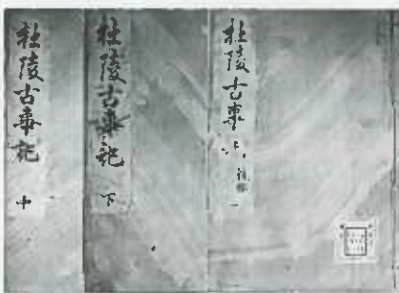 杜陵古事記 上
杜陵古事記 下
杜陵古事記 中